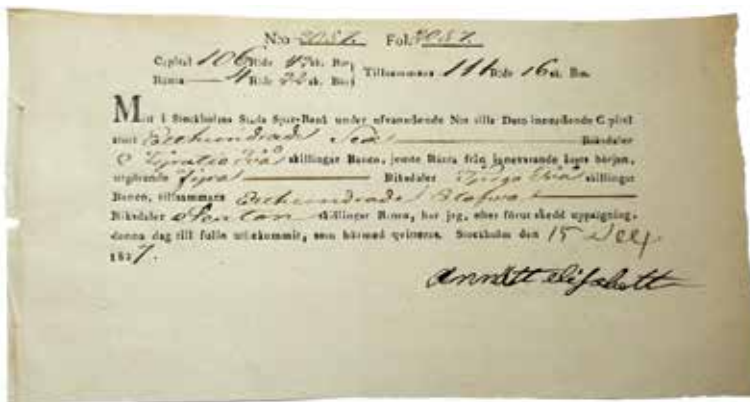 N:o 2087. Fol. 2087.
Capital 106 Rdr 42 sk. Bco
Ränta 4 Rdr 22 sk. Bco
Tillsammans 111 Rdr 16 sk. Bco.
Mitt i Stockholms Stads Spar-Bank under ofvanstående N:o tills Dato innestående Capital
stort Etthundrade Sex Riksdaler
Fyratio två skillingar Banco, jemte Ränta från innevarande års början,
utgörande Fyra Riksdaler Tjugo två skillingar
Banco, tillsammans Etthundrade Elofva
Riksdaler Sexton skillingar Banco, har jag, efter förut skedd uppsägning,
denna dag till fullo utbekommit, som härmed qvitteras. Stockholm den 15
1827.